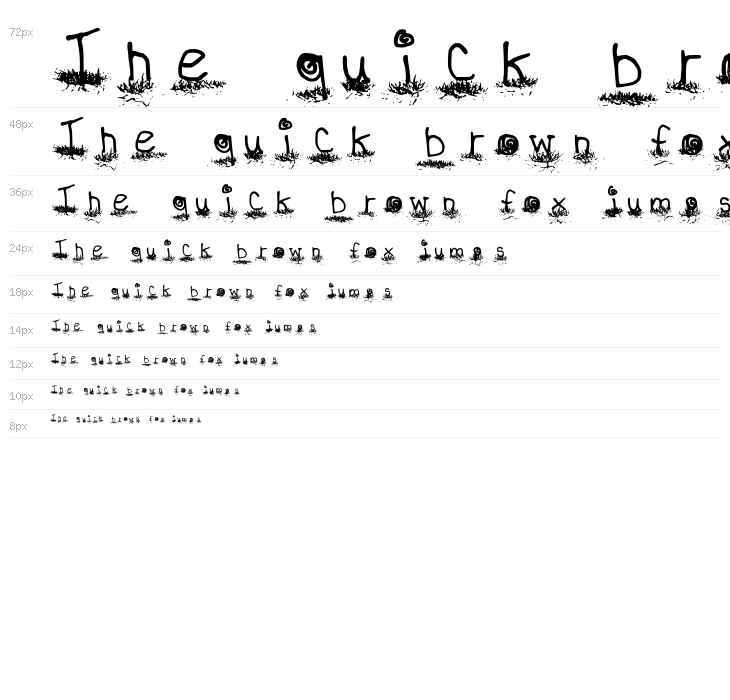 72px The quick br
48px The quick brown fox
36px The quick brown fox jumps
24px The quick brown fox jumps
18px The quick brown fox jumps
14px The quick brown fox jumps
12px The quick brown fox jumps
10px The quick brown fox jumps
8px The quick brown fox jumps